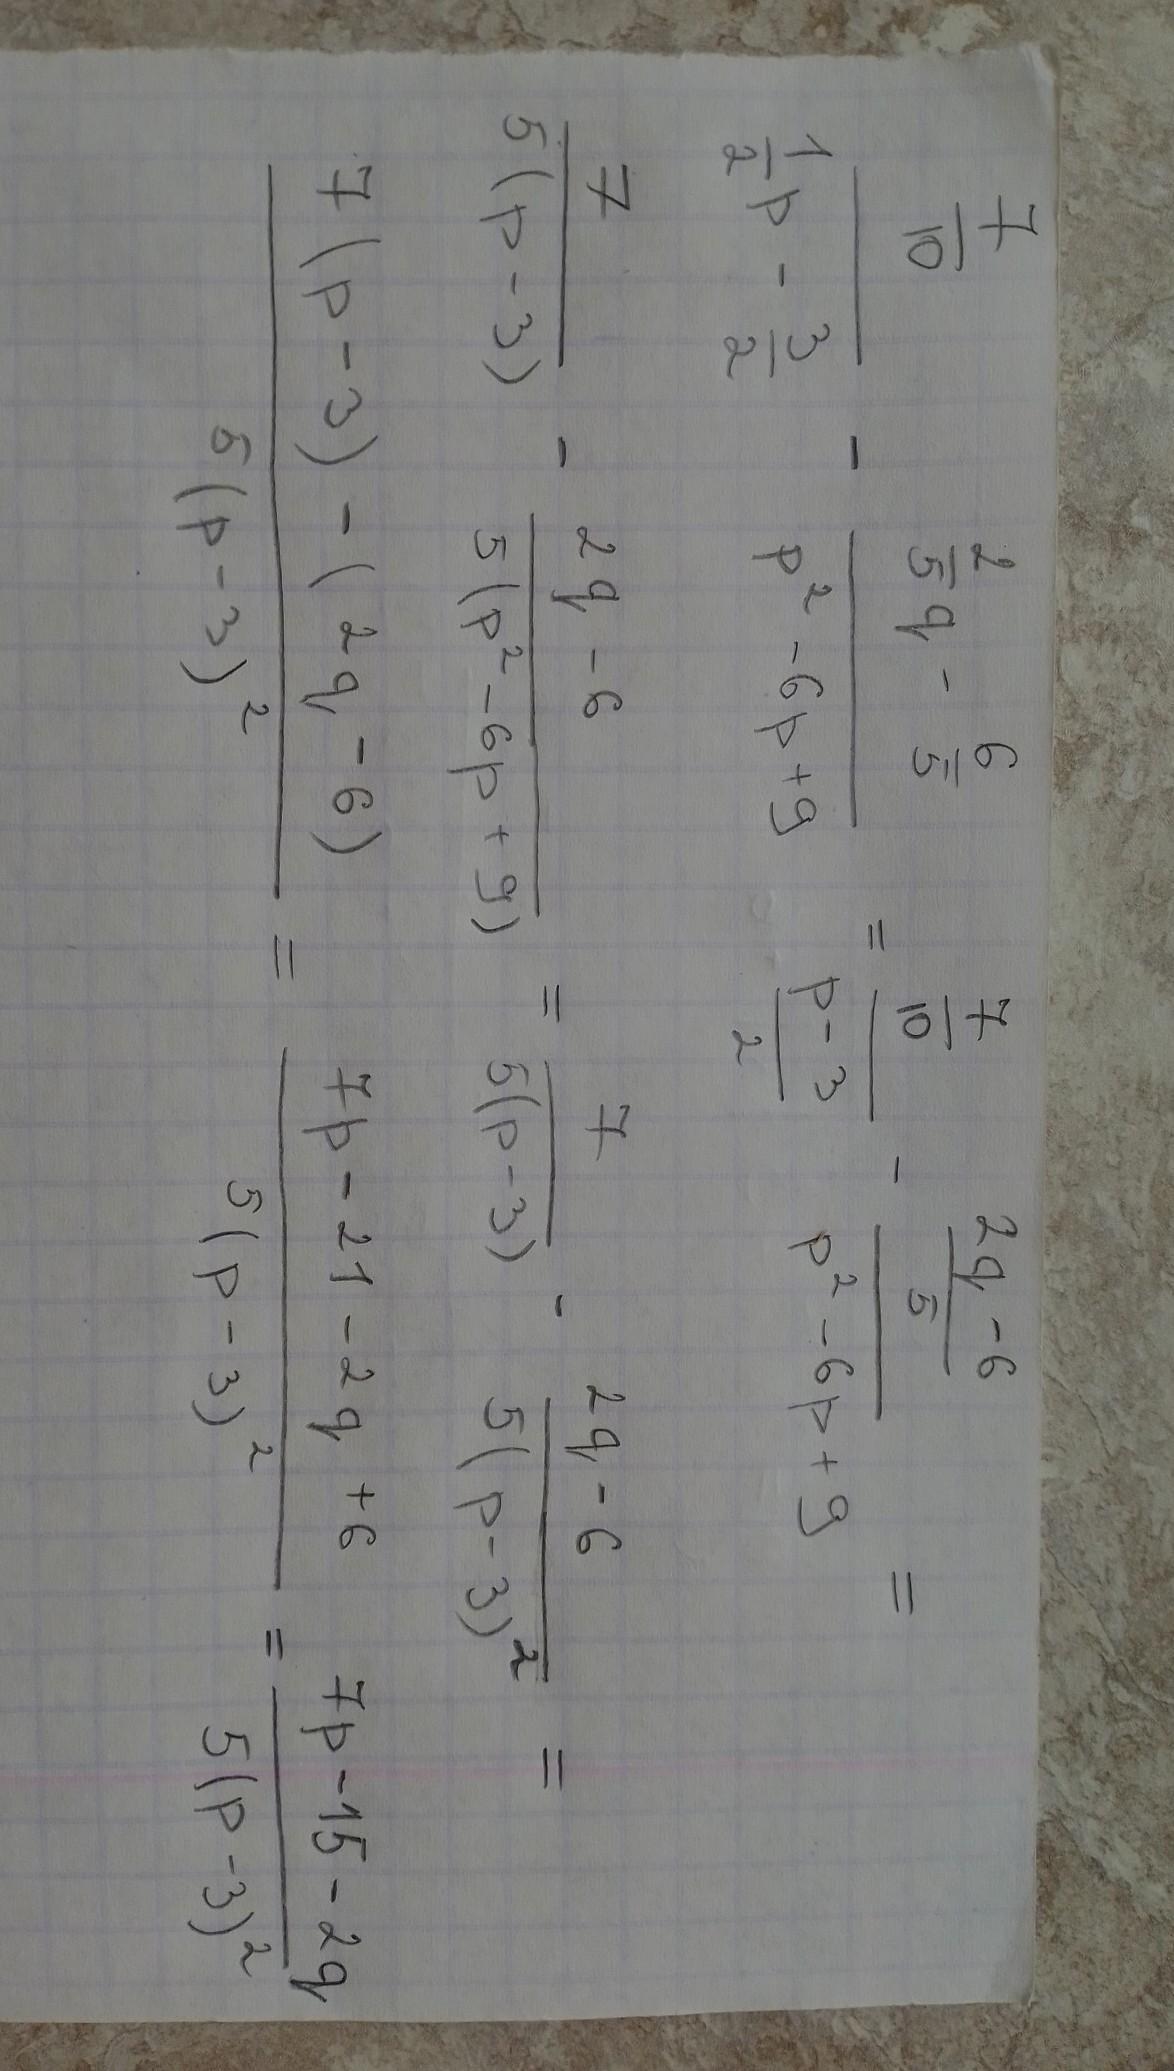 \frac{\frac{7}{10}}{\frac{1}{2}p - \frac{3}{2}} - \frac{\frac{2}{5}q - \frac{6}{5}}{p^2 - 6p + 9} = \frac{\frac{7}{10}}{\frac{p-3}{2}} - \frac{\frac{2q-6}{5}}{p^2 - 6p + 9} =
\frac{7}{5(p-3)} - \frac{2q-6}{5(p^2-6p+9)} = \frac{7}{5(p-3)} - \frac{2q-6}{5(p-3)^2} =
\frac{7(p-3)-(2q-6)}{5(p-3)^2} = \frac{7p-21-2q+6}{5(p-3)^2} = \frac{7p-15-2q}{5(p-3)^2}